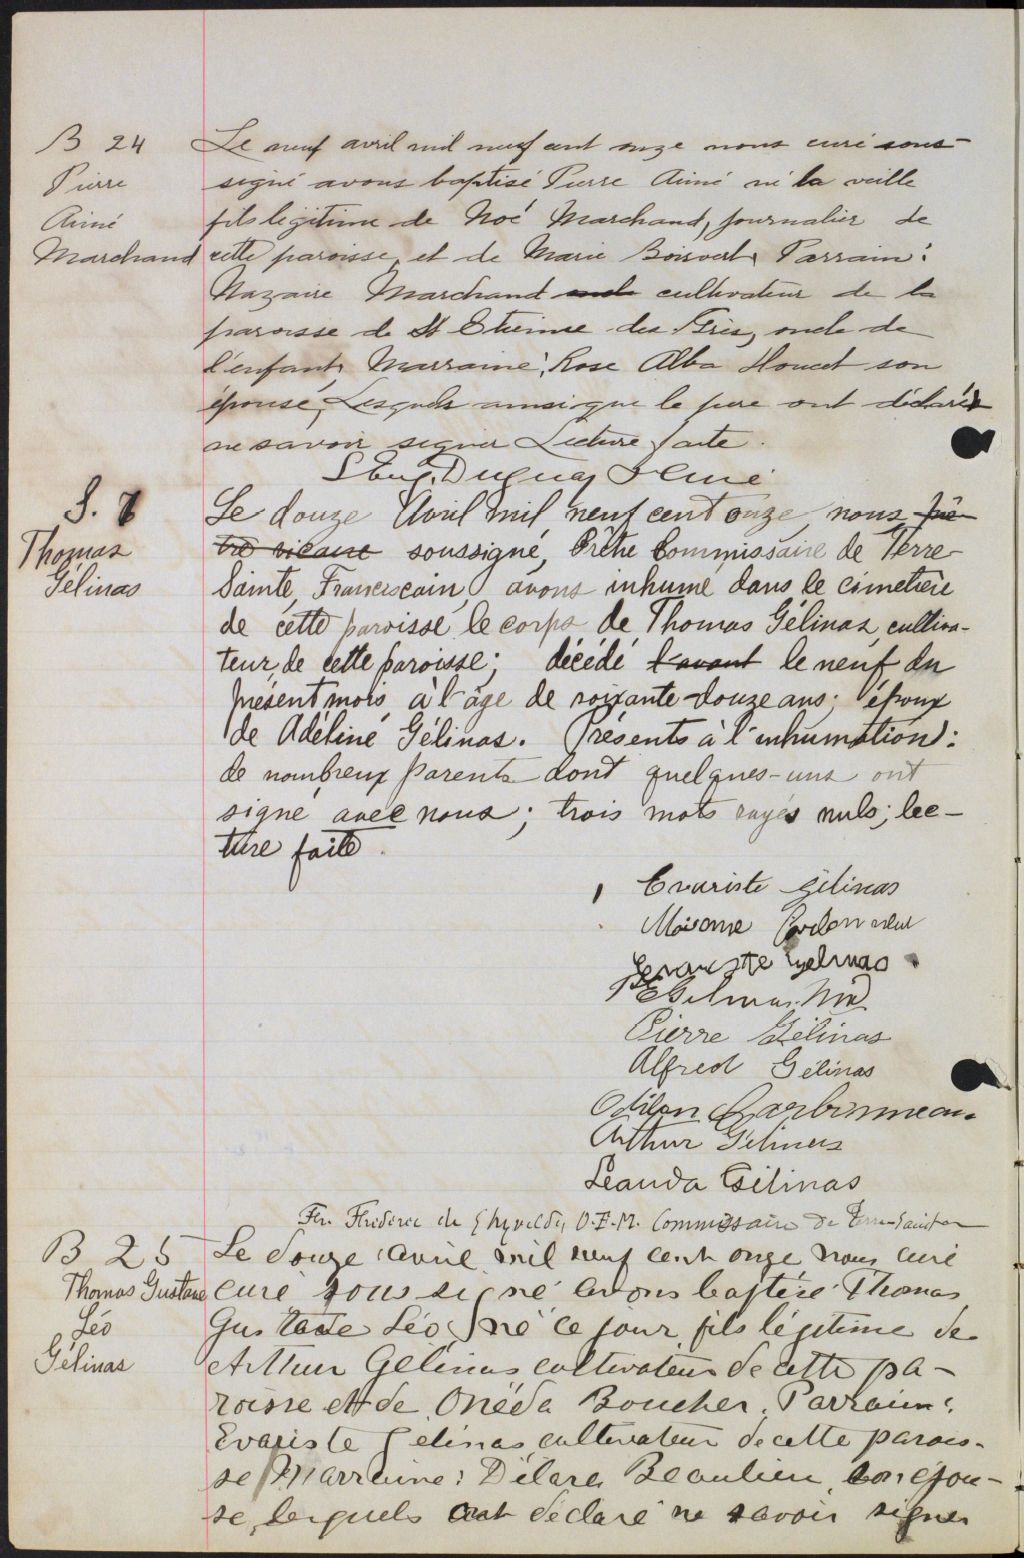 B 24
Pierre
Aimé
Marchand
Le neuf avril mil neuf cent onze nous curé sous-
signé avons baptisé Pierre Aimé né la veille
fils légitime de Noé Marchand, journalier de
cette paroisse, et de Marie Boisvert, Parrain:
Nazaire Marchand oncle cultivateur de la
paroisse de St Etienne des Grès, oncle de
l'enfant, Marraine: Rose Alba Houet son
épouse, Lesquels ainsi que le père ont déclaré
ne savoir signer Lecture faite.
L Eug. Duguay Ptre Curé
S. 7
Thomas
Gélinas
Le douze Avril mil neuf cent onze, nous, prê-
tre vicaire soussigné, Prêtre Commissaire de Terre-
Sainte, Franciscain, avons inhumé dans le cimetière
de cette paroisse le corps de Thomas Gélinas, cultiva-
teur, de cette paroisse; décédé l'avant le neuf du
présent mois à l'âge de soixante-douze ans; époux
de Adéline Gélinas. Présents à l'inhumation:
de nombreux parents dont quelques-uns ont
signé avec nous; trois mots rayés nuls; lec-
ture faite.
Evariste Gélinas
Evariste Gelinas
Gelinas
Pierre Gélinas
Alfred Gélinas
Odilon Carbonneau
Arthur Gélinas
Léanda Gélinas
Fr. Frédéric de Ghyvelde, O.F.M. Commissaire de Terre-Sainte
B 25
Thomas Gustave
Léo
Gélinas
Le douze avril mil neuf cent onze nous curé
curé soussigné avons baptisé Thomas
Gustave Léo, né ce jour, fils légitime de
Arthur Gélinas cultivateur de cette pa-
roisse et de Onéda Boucher. Parrain:
Evariste Gélinas, cultivateur de cette parois-
se, Marraine: Délare Beaulieu, son épou-
se, lesquels ont déclaré ne savoir signer